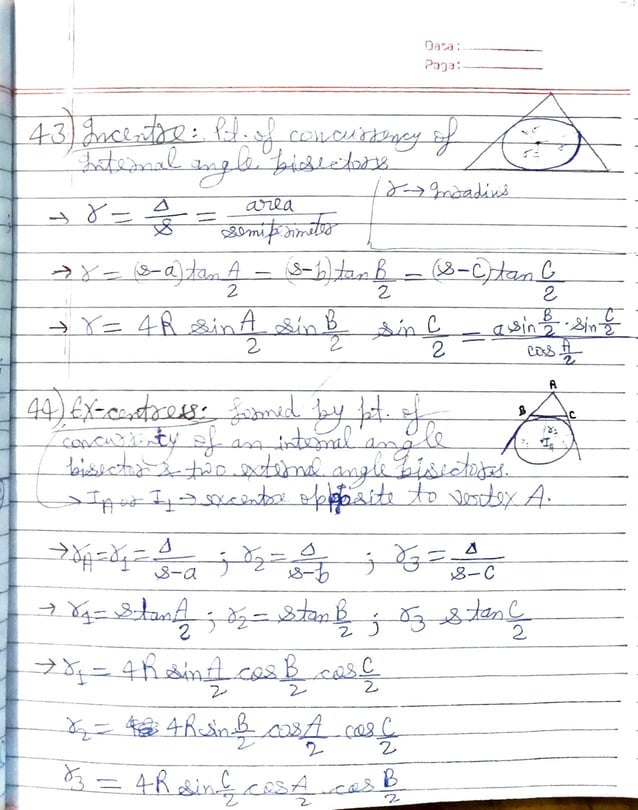 Data:
Page:
43) Incentre: Pt. of concurrency of
internal angle bisectors
r → Inradius
→ r = Δ/s = area/semiperimeter
→ r = (s-a)tan A/2 = (s-b)tan B/2 = (s-c)tan C/2
→ r = 4R sin A/2 sin B/2 sin C/2 = a sin B/2 · sin C/2 / cos A/2
44) Ex-centres: formed by pt. of
concurrinty of an internal angle
bisector & two external angle bisectors.
A
B C
r1
I_A
→ I_A or I_1 → excentre opposite to vertex A.
→ r_A = r_1 = Δ/s-a ; r_2 = Δ/s-b ; r_3 = Δ/s-c
→ r_1 = s tan A/2 ; r_2 = s tan B/2 ; r_3 s tan C/2
→ r_1 = 4R sin A/2 cos B/2 cos C/2
r_2 = 4R sin B/2 cos A/2 cos C/2
r_3 = 4R sin C/2 cos A/2 cos B/2